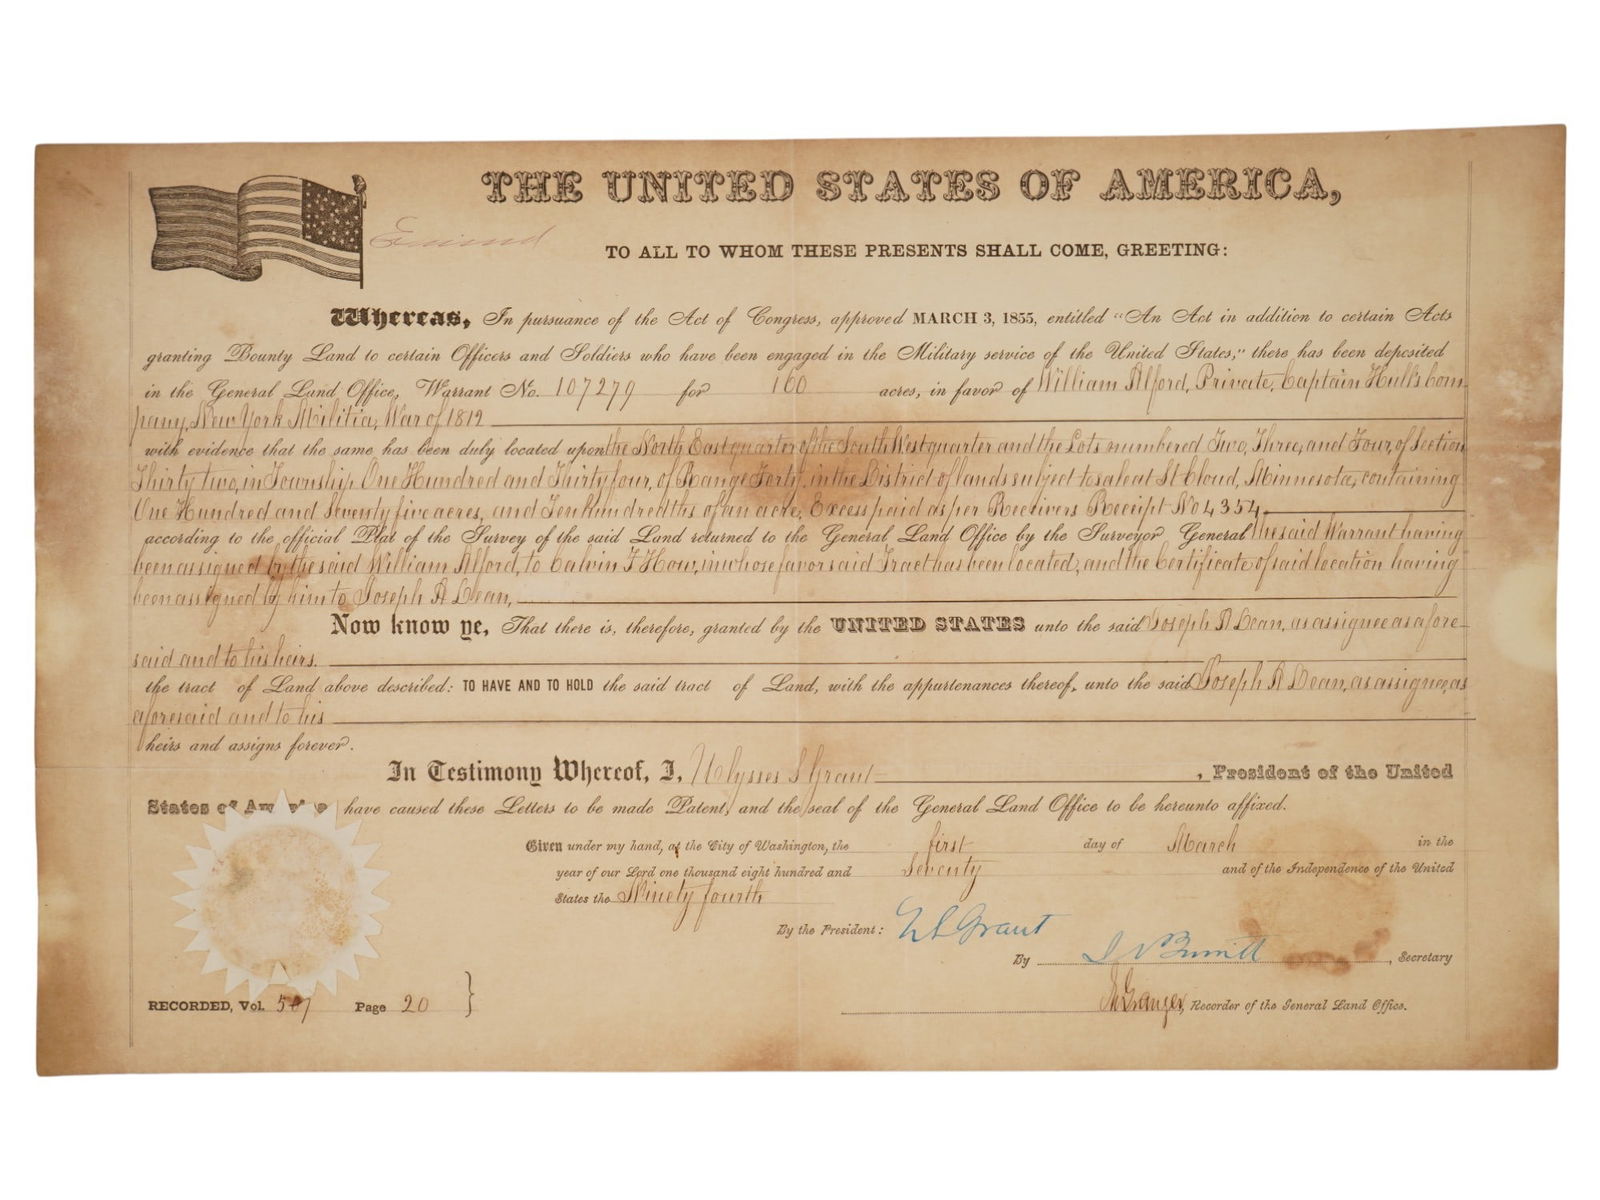 THE UNITED STATES OF AMERICA,
TO ALL TO WHOM THESE PRESENTS SHALL COME, GREETING:
Whereas, In pursuance of the Act of Congress, approved MARCH 3, 1855, entitled "An Act in addition to certain Acts
granting Bounty Land to certain Officers and Soldiers who have been engaged in the Military service of the United States," there has been deposited
in the General Land Office, Warrant No. 107279 for 160 acres, in favor of William Alford, Private, Captain Hull's Com-
pany, New York Militia, War of 1812
with evidence that the same has been duly located upon the North East quarter of the South West quarter and the Lots numbered Two, Three, and Four, of Section
Thirty two, in Township One Hundred and Thirty four, of Range Forty, in the District of lands subject to sale at St Cloud, Minnesota, containing
One Hundred and Seventy five acres, and Ten hundredths of an acre, Excess paid as per Receivers Receipt No 4354,
according to the official Plat of the Survey of the said Land returned to the General Land Office by the Surveyor General the said Warrant having
been assigned by the said William Alford, to Calvin F How, in whose favor said Tract has been located, and the Certificate of said location having
been assigned by him to Joseph A Dean,
Now know ye, That there is, therefore, granted by the UNITED STATES unto the said Joseph A Dean, as assignee as afore-
said and to his heirs.
the tract of Land above described: TO HAVE AND TO HOLD the said tract of Land, with the appurtenances thereof, unto the said Joseph A Dean, as assignee, as
aforesaid and to his
heirs and assigns forever.
In Testimony Whereof, I, Ulysses S Grant, President of the United
States of America have caused these Letters to be made Patent, and the seal of the General Land Office to be hereunto affixed.
Given under my hand, at the City of Washington, the first day of March in the
year of our Lord one thousand eight hundred and Seventy and of the Independence of the United
States the Ninety fourth
By the President: U S Grant
By , Secretary
RECORDED, Vol. Page 20 } Granger, Recorder of the General Land Office.